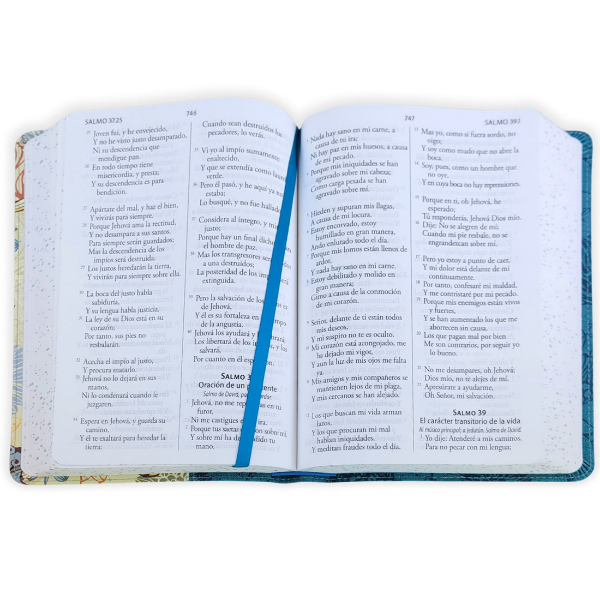 SALMO 37.25
746
25 Joven fui, y he envejecido,
Y no he visto justo desamparado,
Ni su descendencia que
mendigue pan.
26 En todo tiempo tiene
misericordia, y presta;
Y su descendencia es para
bendición.
27 Apártate del mal, y haz el bien,
Y vivirás para siempre.
28 Porque Jehová ama la rectitud,
Y no desampara a sus santos.
Para siempre serán guardados;
Mas la descendencia de los
impíos será destruida.
29 Los justos heredarán la tierra,
Y vivirán para siempre sobre ella.
30 La boca del justo habla
sabiduría,
Y su lengua habla justicia.
31 La ley de su Dios está en su
corazón;
Por tanto, sus pies no
resbalarán.
32 Acecha el impío al justo,
Y procura matarlo.
33 Jehová no lo dejará en sus
manos,
Ni lo condenará cuando le
juzgaren.
34 Espera en Jehová, y guarda su
camino,
Y él te exaltará para heredar la
tierra;
Cuando sean destruidos los
pecadores, lo verás.
35 Vi yo al impío sumamente
enaltecido,
Y que se extendía como laurel
verde.
36 Pero él pasó, y he aquí ya no
estaba;
Lo busqué, y no fue hallado.
37 Considera al íntegro, y mira
justo;
Porque hay un final dichoso
el hombre de paz.
38 Mas los transgresores serán
a una destruidos;
La posteridad de los impíos será
extinguida.
39 Pero la salvación de los
es de Jehová,
Y él es su fortaleza en el tiempo
de la angustia.
40 Jehová los ayudará y los librará;
Los libertará de los impíos, y los
salvará,
Por cuanto en él
SALMO
Oración de un penitente
Salmo de David, para
1 Jehová, no me reprendas en tu
furor,
Ni me castigues en tu ira.
2 Porque tus saetas
Y sobre mí ha descendido tu
mano.
747
SALMO 39.1
3 Nada hay sano en mi carne, a
causa de tu ira;
Ni hay paz en mis huesos, a causa
de mi pecado.
4 Porque mis iniquidades se han
agravado sobre mi cabeza;
Como carga pesada se han
agravado sobre mí.
5 Hieden y supuran mis llagas,
A causa de mi locura.
6 Estoy encorvado, estoy
humillado en gran manera,
Ando enlutado todo el día.
7 Porque mis lomos están llenos de
ardor,
Y nada hay sano en mi carne.
8 Estoy debilitado y molido en
gran manera;
Gimo a causa de la conmoción
de mi corazón.
9 Señor, delante de ti están todos
mis deseos,
Y mi suspiro no te es oculto.
10 Mi corazón está acongojado, me
ha dejado mi vigor,
Y aun la luz de mis ojos me falta
ya.
11 Mis amigos y mis compañeros se
mantienen lejos de mi plaga,
Y mis cercanos se han alejado.
12 Los que buscan mi vida arman
lazos,
Y los que procuran mi mal
hablan iniquidades,
Y meditan fraudes todo el día.
13 Mas yo, como si fuera sordo, no
oigo;
Y soy como mudo que no abre la
boca.
14 Soy, pues, como un hombre que
no oye,
Y en cuya boca no hay reprensiones.
15 Porque en ti, oh Jehová, he
esperado;
Tú responderás, Jehová Dios mío.
16 Dije: No se alegren de mí;
Cuando mi pie resbale, no se
engrandezcan sobre mí.
17 Pero yo estoy a punto de caer,
Y mi dolor está delante de mí
continuamente.
18 Por tanto, confesaré mi maldad,
Y me contristaré por mi pecado.
19 Porque mis enemigos están vivos
y fuertes,
Y se han aumentado los que me
aborrecen sin causa.
20 Los que pagan mal por bien
Me son contrarios, por seguir yo
lo bueno.
21 No me desampares, oh Jehová;
Dios mío, no te alejes de mí.
22 Apresúrate a ayudarme,
Oh Señor, mi salvación.
SALMO 39
El carácter transitorio de la vida
Al músico principal; a Jedutún. Salmo de David.
1 Yo dije: Atenderé a mis caminos,
Para no pecar con mi lengua;